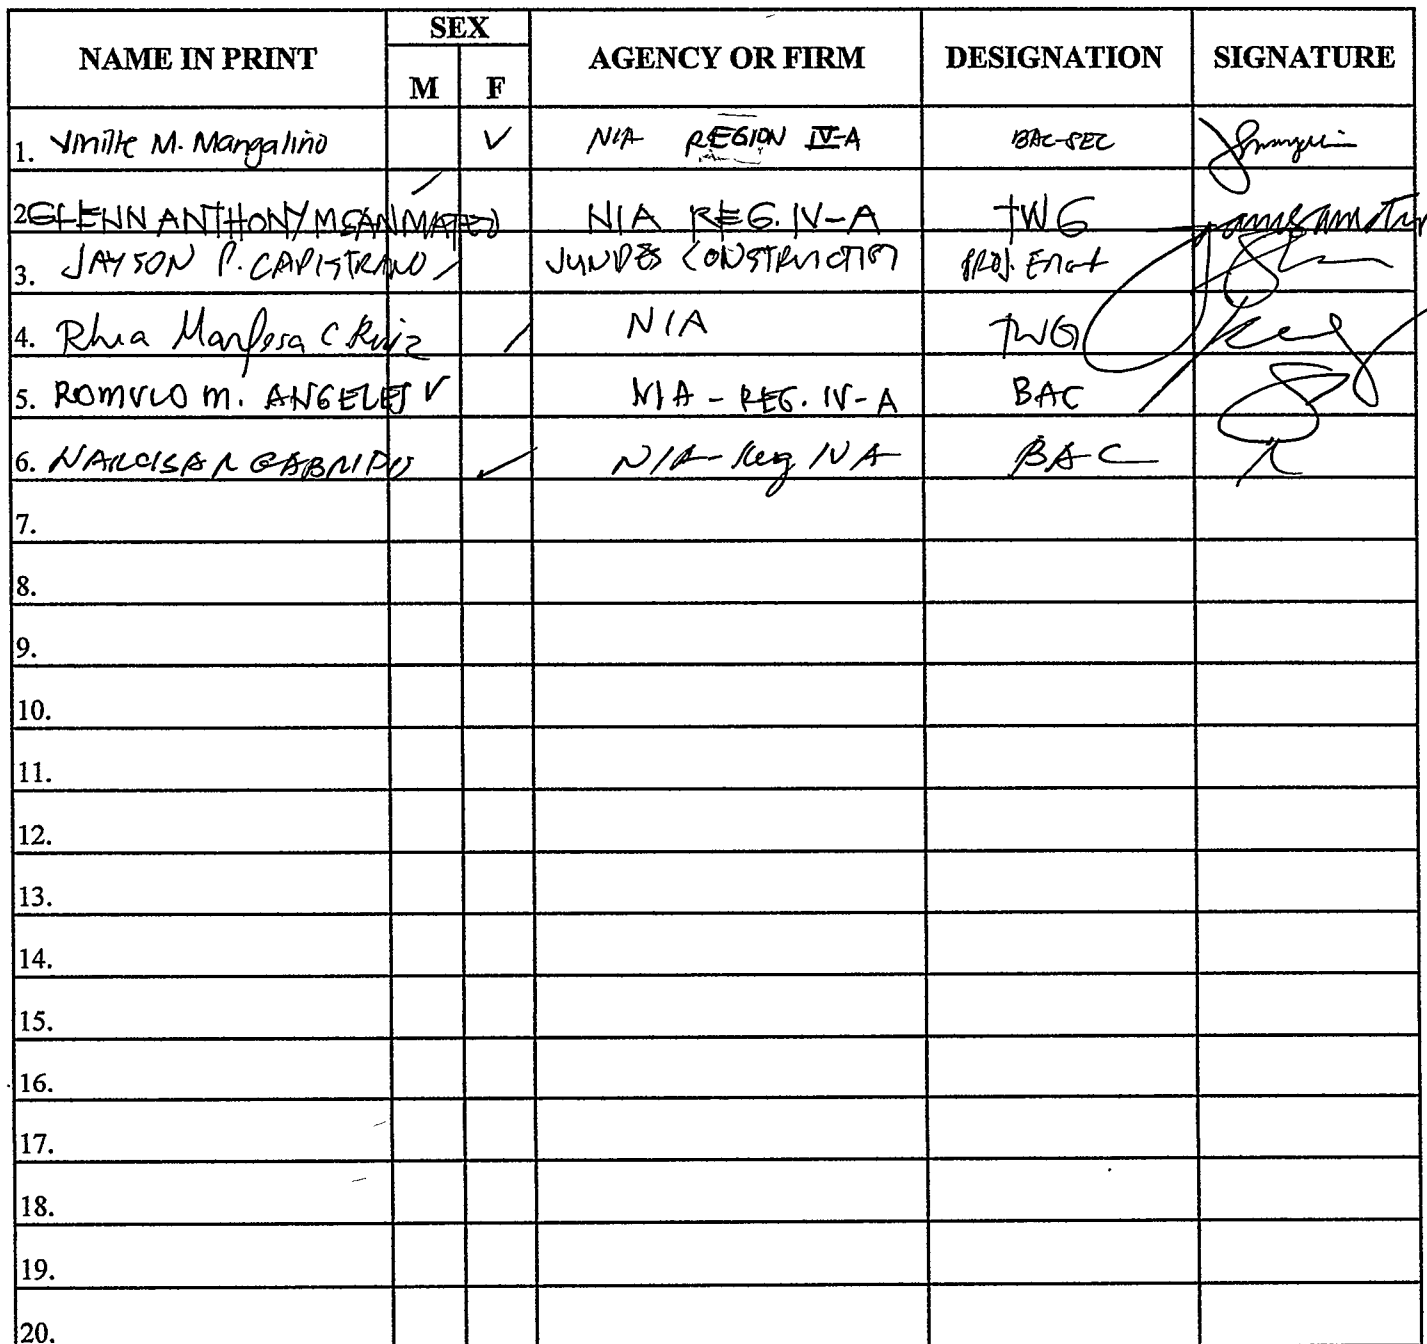 NAME IN PRINT SEX AGENCY OR FIRM DESIGNATION SIGNATURE
M F
1. M. Mangaliño ✓ NIA REGION IV-A BAC-SEC
2 GLENN ANTHONY M SAN MATEO / NIA REG. IV-A TWG
3. JAYSON P. CAPISTRANO / JUNDES CONSTRUCTION PROJ. ENGR
4. Rhia C Ruiz / NIA TWG
5. ROMULO M. ANGELES ✓ NIA - REG. IV-A BAC
6. NARCISA R ✓ NIA - Reg IVA BAC
7.
8.
9.
10.
11.
12.
13.
14.
15.
16.
17.
18.
19.
20.